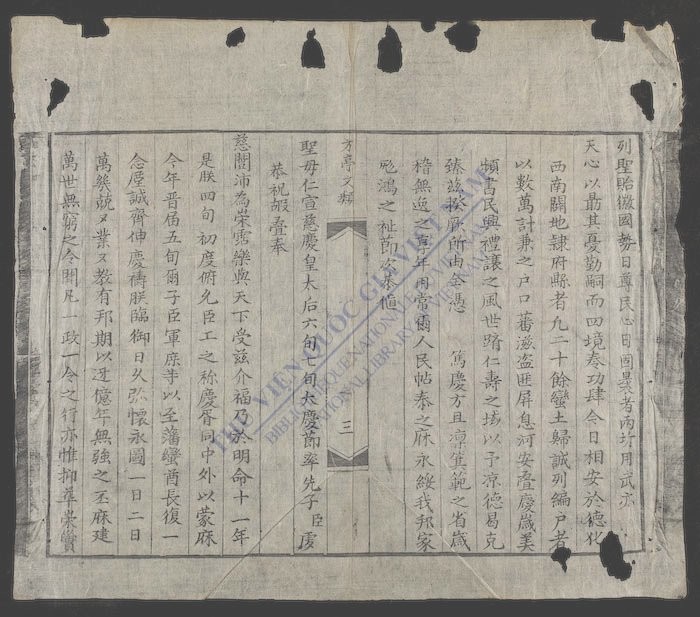 列聖貽徽國勢日尊民心日固曩者兩圻用武亦
天心以最其憂勤嗣而四境奏功肆今日相安於德化
西南闢地隸府縣者九二十餘蠻土歸誠列編戶者
以數萬計兼之戶口蕃滋盜匪屏息河安疊慶歲美
頻書民興禮讓之風世躋仁壽之域以予涼德曷克
臻茲揆厥所由全憑 篤慶方且凜箕範之省歲
稽無逸之享年用當爾人民帖泰之庥永綏我邦家
鴻之祉節次恭值
方亭文類
三
聖母仁宣慈慶皇太后六旬七旬大慶節率先子臣虔
恭祝嘏疊奉
慈闈沛為榮霑樂與天下受茲介福乃於明命十一年
是朕四旬初度俯允臣工之稱慶胥同中外以蒙庥
今年晉届五旬爾子臣軍庶等以至藩蠻酋長復一
念屋誠齊伸慶禱朕臨御日久弥懷永圖一日二日
萬幾兢又業又教有邦期以迓億年無強之丕庥建
萬世無窮之令聞凡一政一令之行亦惟抑華崇實
THƯ VIỆN QUỐC GIA VIỆT NAM
BIBLIOTHEQUE NATIONALE DU VIETNAM
NATIONAL LIBRARY OF VIETNAM